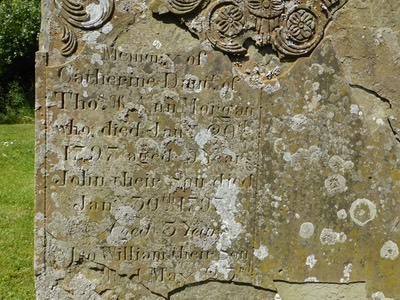 Memory of
Catherine Daur. of
Thos. & Ann Morgan
who died Jany. 20th
1797 aged 9 years
John their Son died
Jany. 30th 1797
Aged 3 Years
Also William their Son
died May